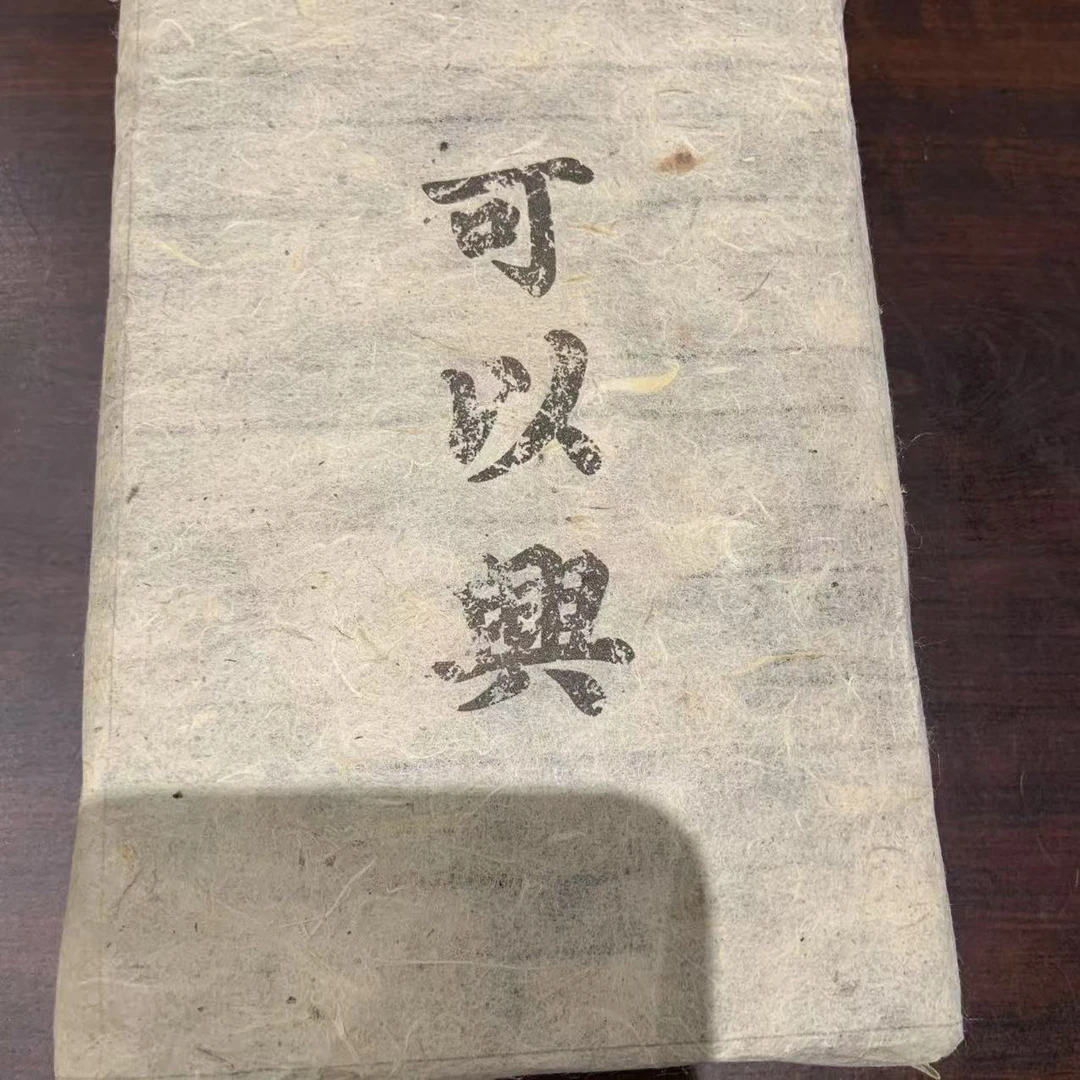 可以興